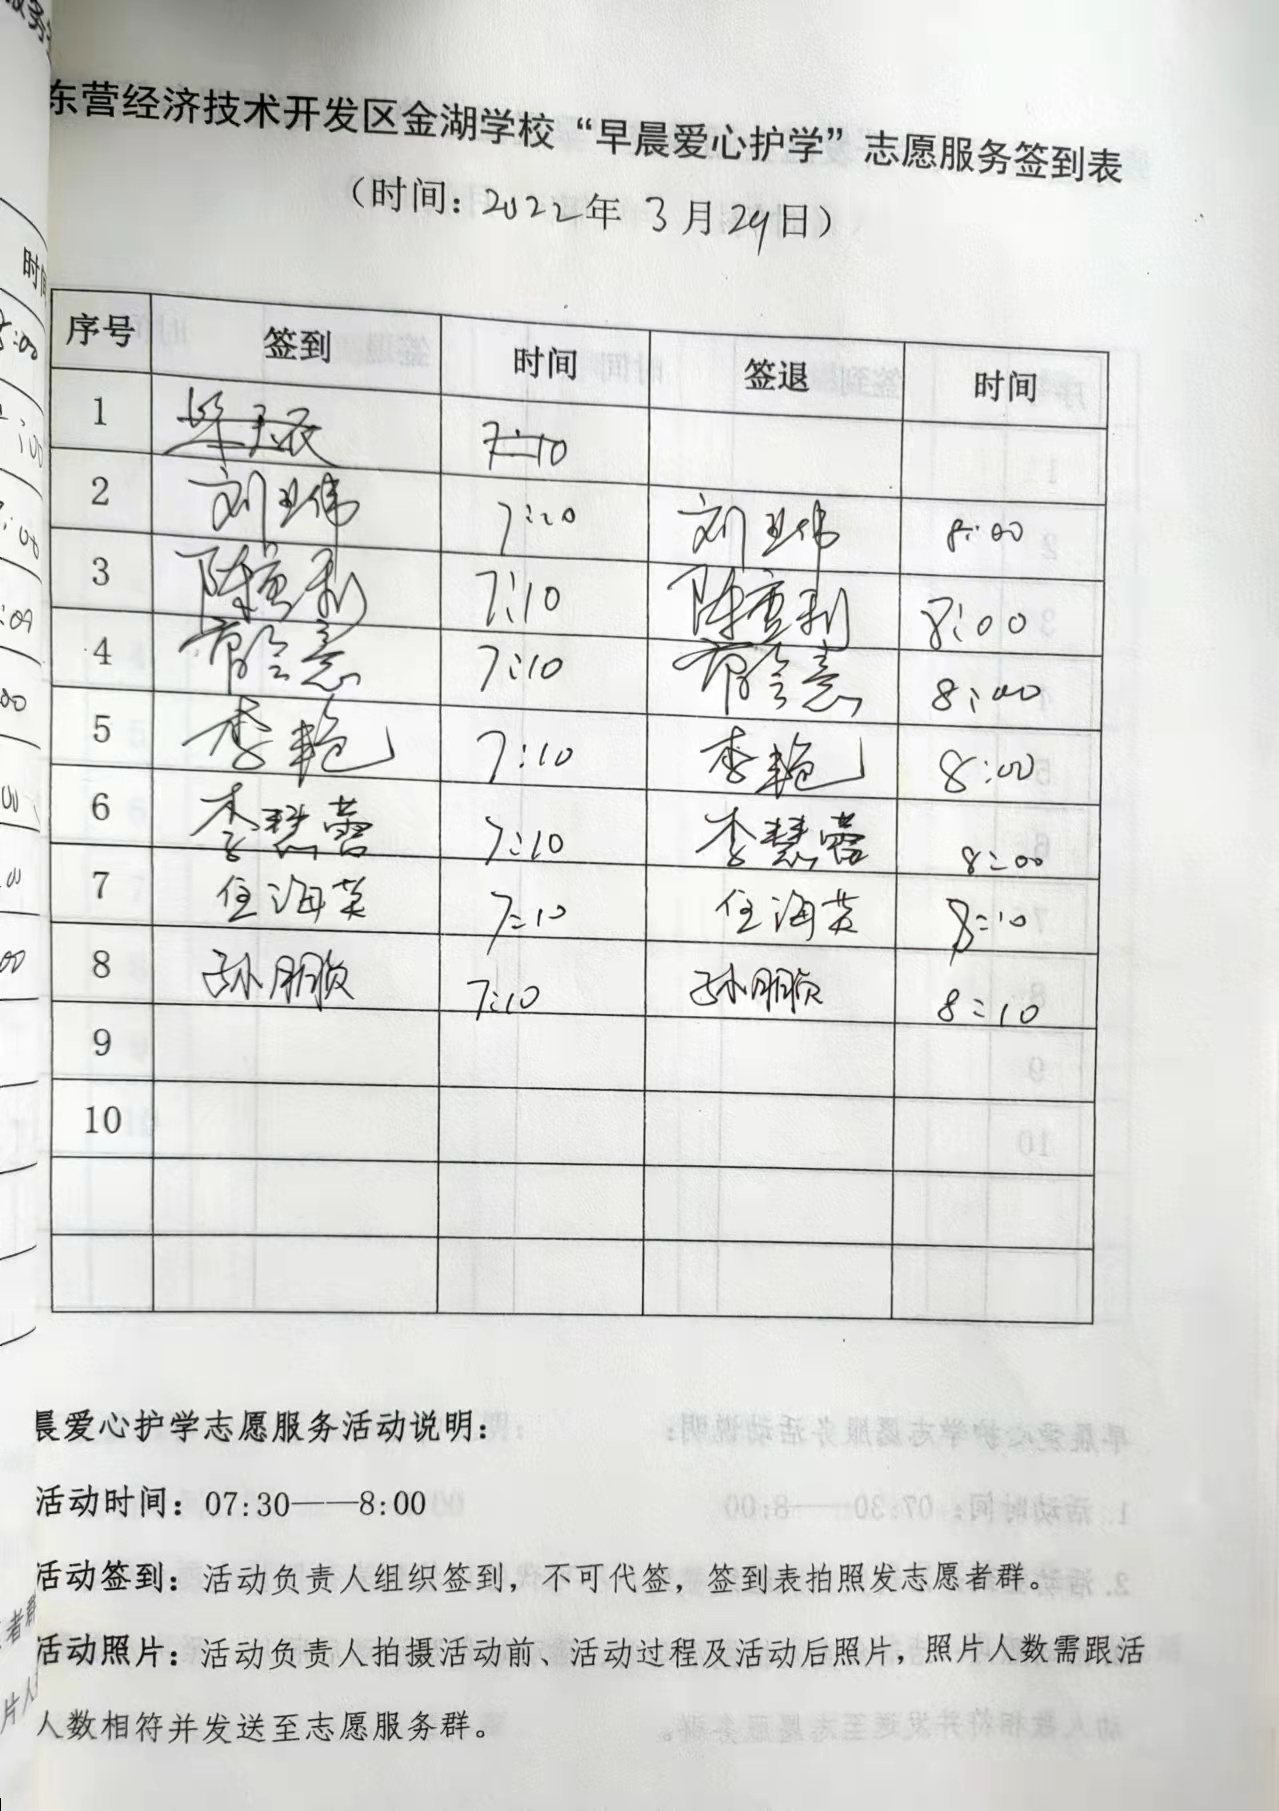 东营经济技术开发区金湖学校“早晨爱心护学”志愿服务签到表
（时间：2022年 3 月 29日）
序号 签到 时间 签退 时间
1 7:10
2 刘卫伟 7:20 刘卫伟 8:00
3 陈重利 7:10 陈重利 8:00
4 7:10 8:00
5 李艳 7:10 李艳 8:00
6 李慧蕾 7:10 李慧蕾 8:00
7 任海英 7:10 任海英 8:10
8 孙朋颀 7:10 孙朋颀 8:10
9
10
晨爱心护学志愿服务活动说明：
活动时间：07:30——8:00
活动签到：活动负责人组织签到，不可代签，签到表拍照发志愿者群。
活动照片：活动负责人拍摄活动前、活动过程及活动后照片，照片人数需跟活
人数相符并发送至志愿服务群。